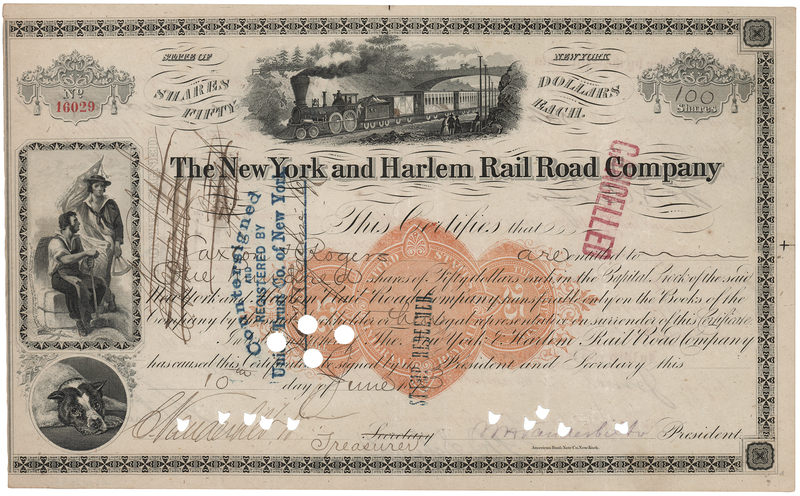 STATE OF
NEW YORK
SHARES
DOLLARS
FIFTY
EACH.
No
16029
100
Shares
The New York and Harlem Rail Road Company
CANCELLED
This Certifies that
Rogers are entitled to
shares of Fifty dollars each in the Capital Stock of the said
New York and Rail Road Company transferable only on the Books of the
Company by or legal representative on surrender of this Certificate
The New York & Harlem Rail Road Company
has caused this Certificate signed by President and Secretary this
10 day of June
Countersigned
AND
REGISTERED BY
Union Trust Co. of New York
STAMP REDEEMED
25
C Vanderbilt
Treasurer
Secretary
President
American Bank Note Co. New York.